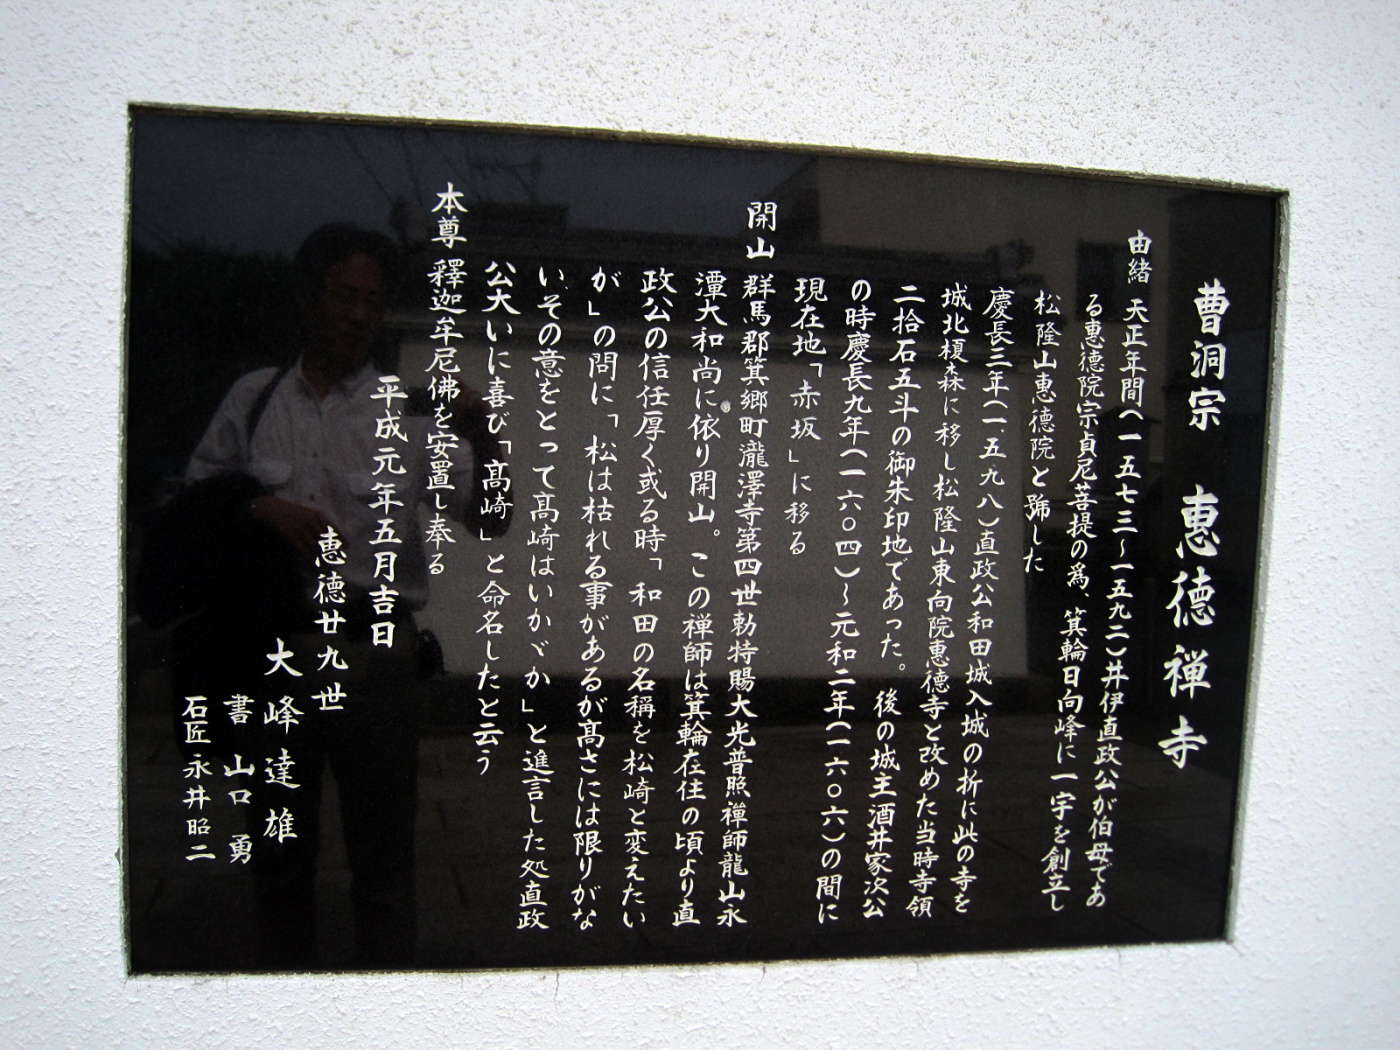 曹洞宗 惠徳禅寺
由緒 天正年間(一五七三〜一五九二)井伊直政公が伯母であ
る惠徳院宗貞尼菩提の為、箕輪日向峰に一宇を創立し
松隆山惠徳院と号した
慶長三年(一五九八)直政公和田城入城の折に此の寺を
城北榎森に移し松隆山東向院惠徳寺と改めた当時寺領
二拾石五斗の御朱印地であった。後の城主酒井家次公
の時慶長九年(一六〇四)〜元和二年(一六〇六)の間に
現在地「赤坂」に移る
開山 群馬郡箕郷町瀧澤寺第四世勅特賜大光普照禅師龍山永
潭大和尚に依り開山。この禅師は箕輪在住の頃より直
政公の信任厚く或る時「和田の名稱を松崎と変えたい
が」の問に「松は枯れる事があるが髙さには限りがな
いその意をとって髙崎はいかゞか」と進言した処直政
公大いに喜び「髙崎」と命名したと云う
本尊 釋迦牟尼佛を安置し奉る
平成元年五月吉日
惠徳廿九世
大峰達雄
書 山口勇
石匠 永井昭二